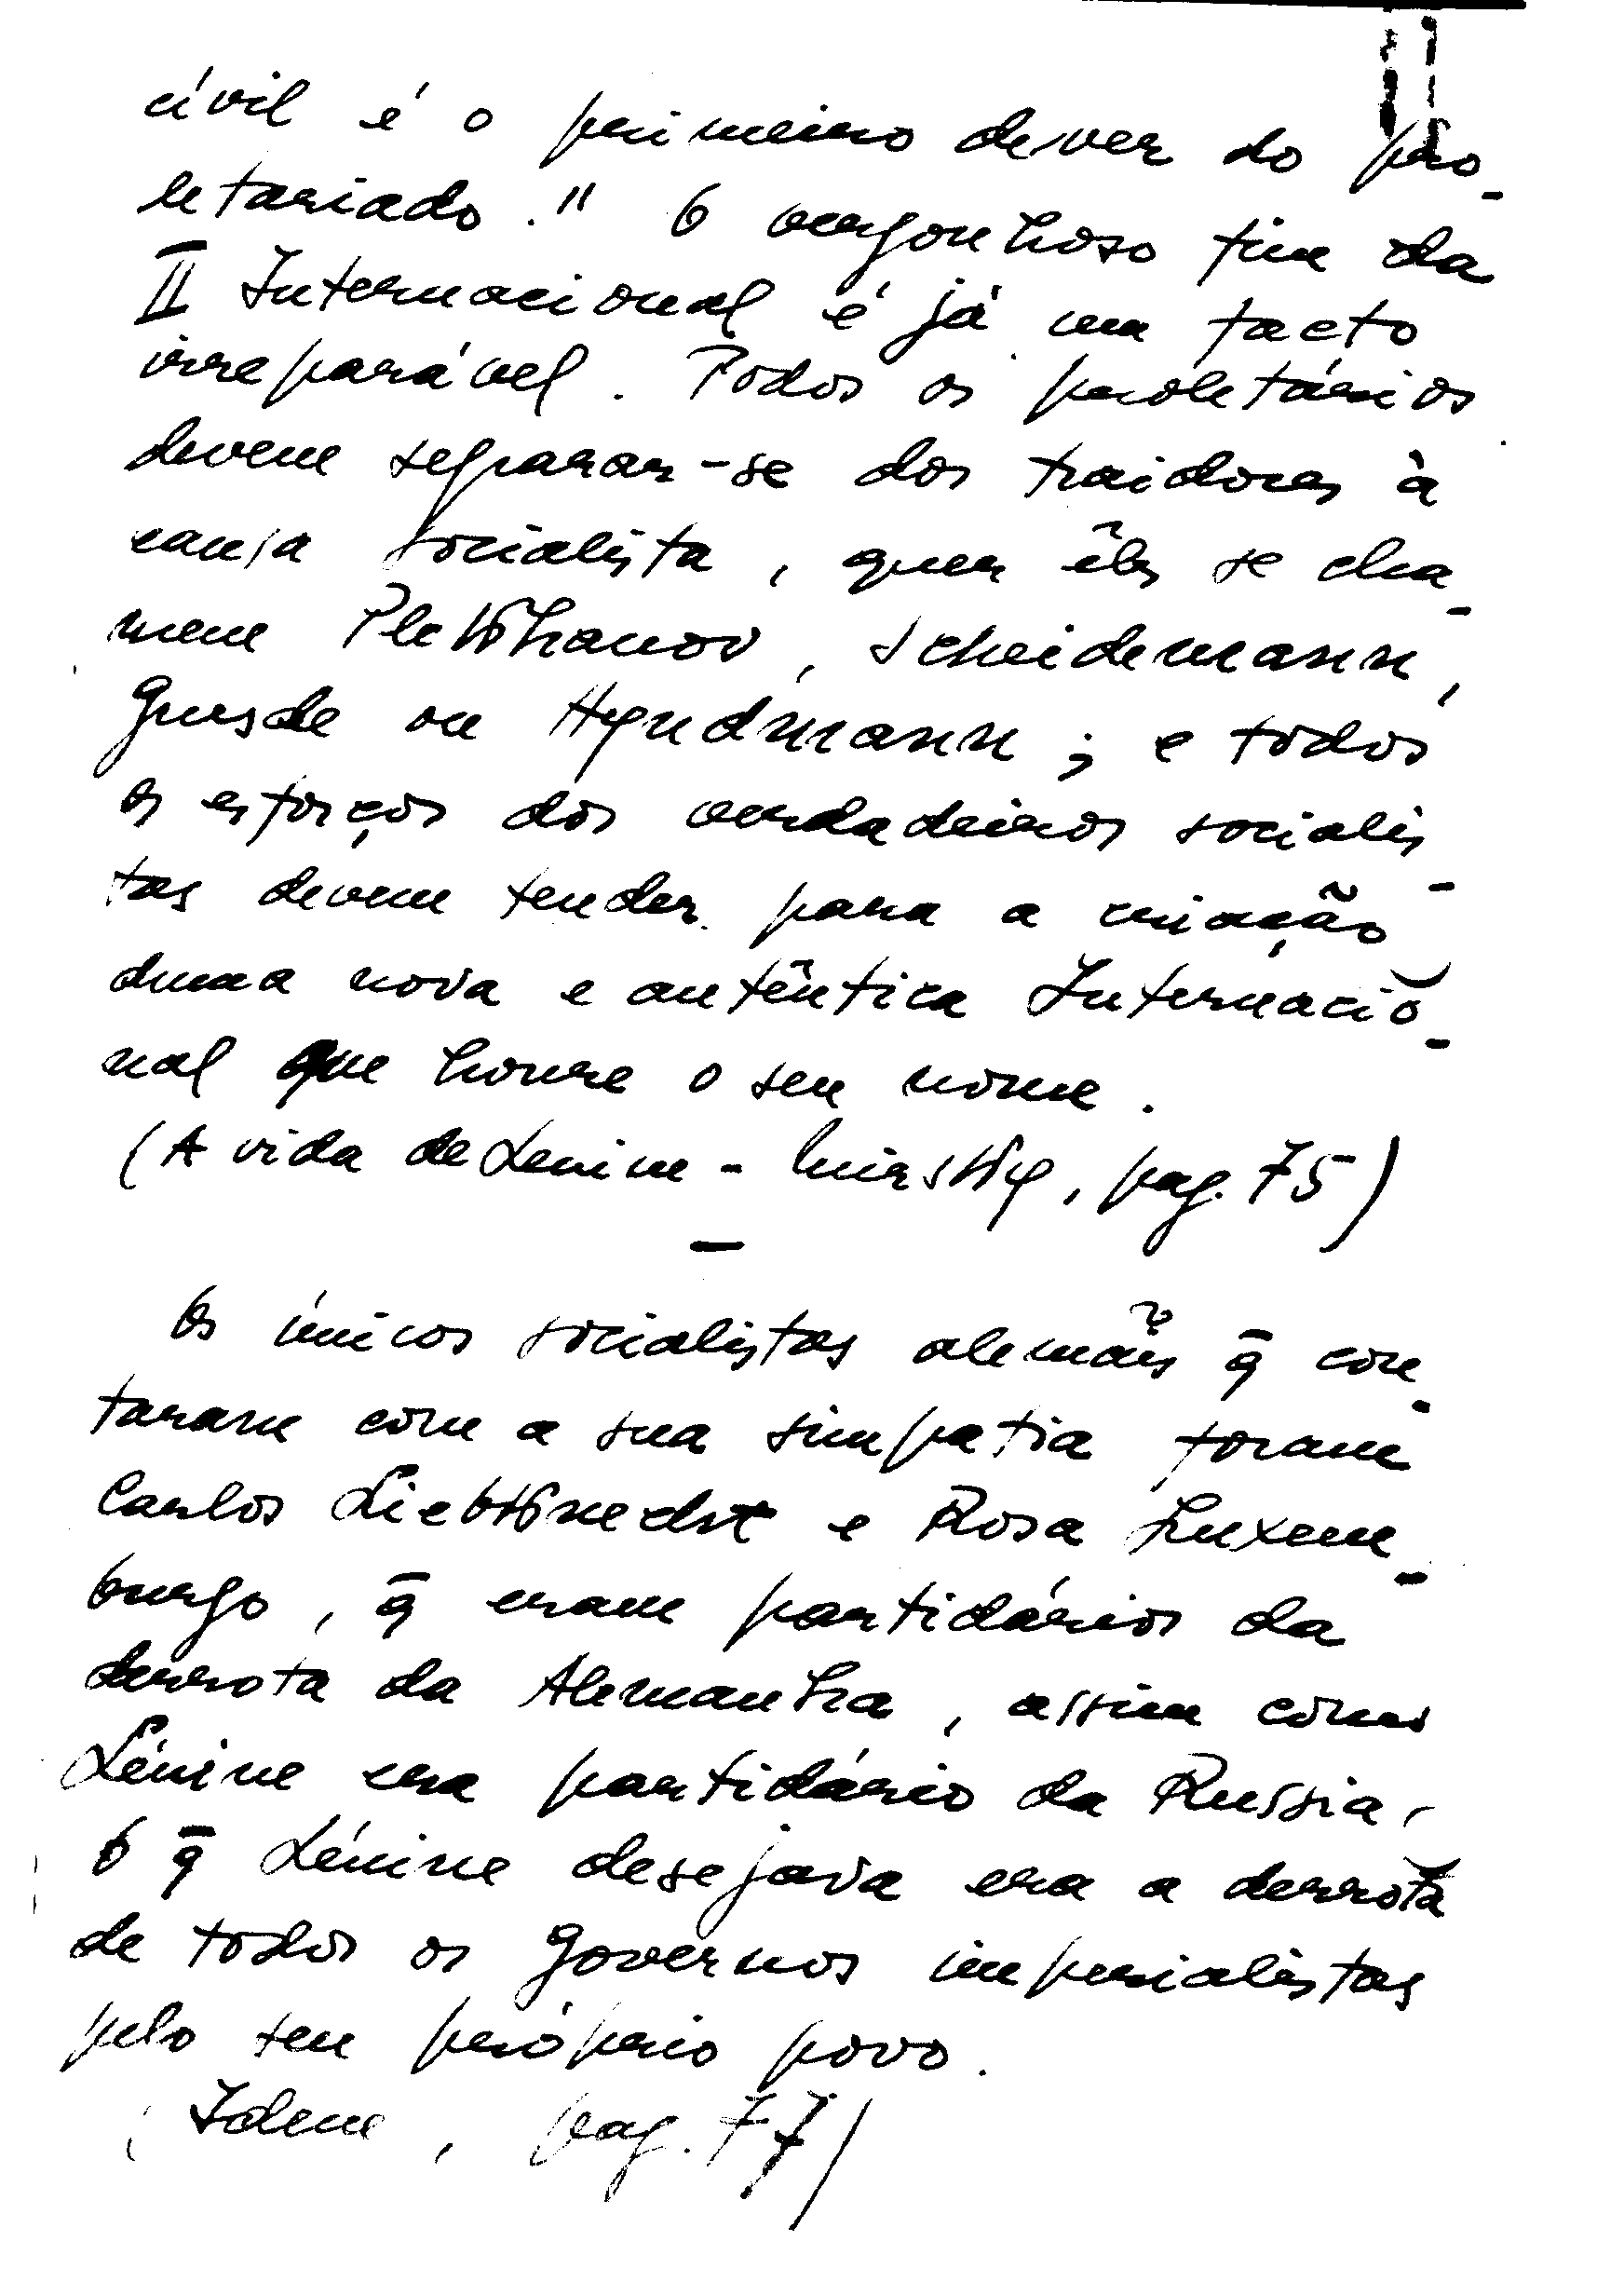 civil é o primeiro dever do pro-
letariado." O vergonhoso fim da
II Internacional é já um facto
irreparável. Todos os proletários
devem separar-se dos traidores à
causa socialista, quer êles se cha-
mem Plekhanov, Scheidemann,
Guesde ou Hyndmann; e todos
os esforços dos verdadeiros socialis-
tas devem tender para a criação
duma nova e autêntica Internacio-
nal que honre o seu nome.
(A vida de Lenine - Mirsky, pag. 75)
—
Os únicos socialistas alemãis q̄ con-
taram com a sua simpatia foram
Carlos Liebknecht e Rosa Luxem-
burgo, q̄ eram partidários da
derrota da Alemanha, assim como
Lénine era partidário da Russia,
O q̄ Lénine desejava era a derrota
de todos os governos imperialistas
pelo seu próprio povo.
(Idem, pag. 77)